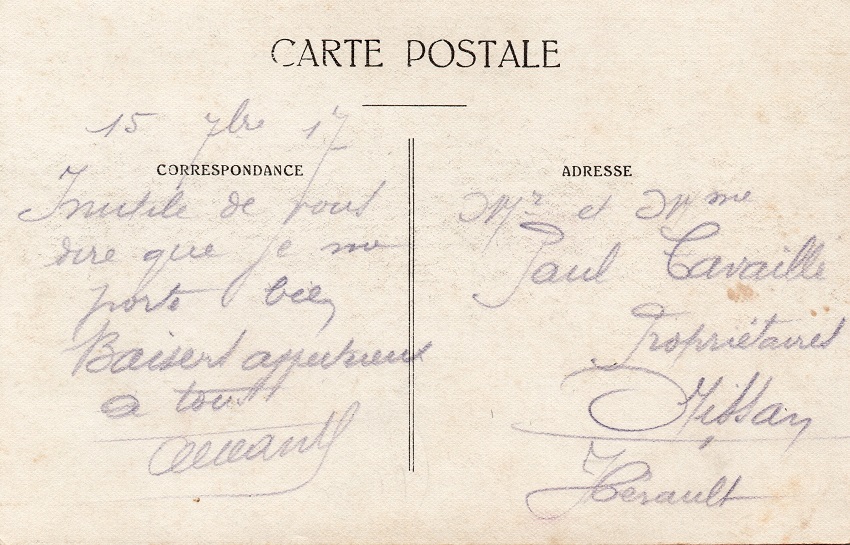 CARTE POSTALE
15 7bre 17
CORRESPONDANCE
Inutile de vous
dire que je me
porte bien
Baisers affectueux
a tous
ADRESSE
Mr et Mme
Paul Cavaillé
Propriétaires
Nissan
Hérault